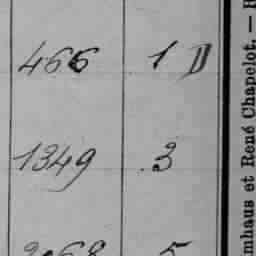 466 1 D
1349 3
2068 5
imhaus et René Chapelot. — H